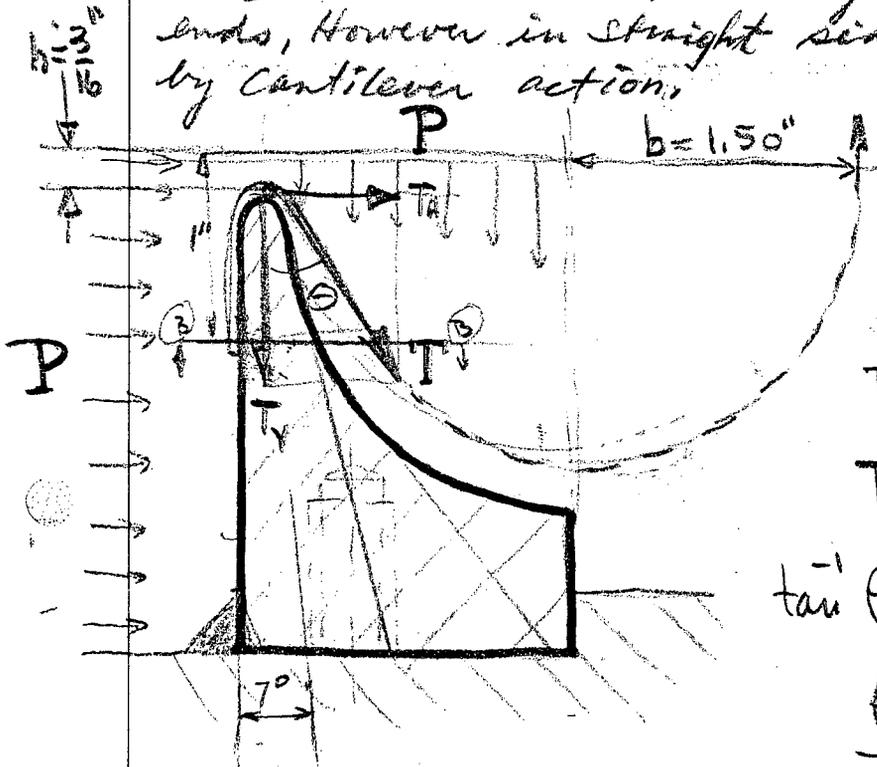 ends, However in straight
by Cantilever action,
P
b=1.50"
T
1"
θ
B
B
T
P
T
tan⁻¹
7°